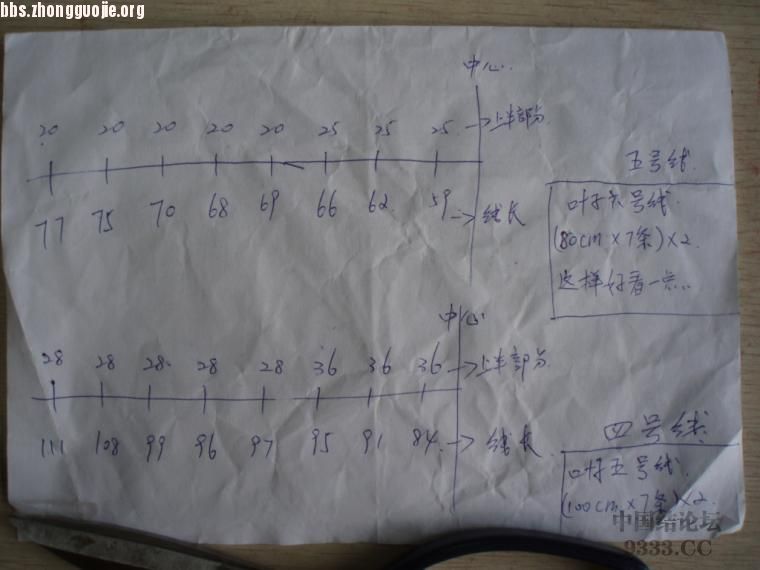 bbs.zhongguojie.org
中心
20 20 20 20 20 25 25 25 →上半部分
77 75 70 68 69 66 62 59 →线长
五号线
叶子六号线
(80cm×7条)×2
这样好看一点
中心
28 28 28 28 28 36 36 36 →上半部分
111 108 99 96 97 95 91 84 →线长
四号线
叶子五号线
(100cm×7条)×2
中国结论坛
9333.CC